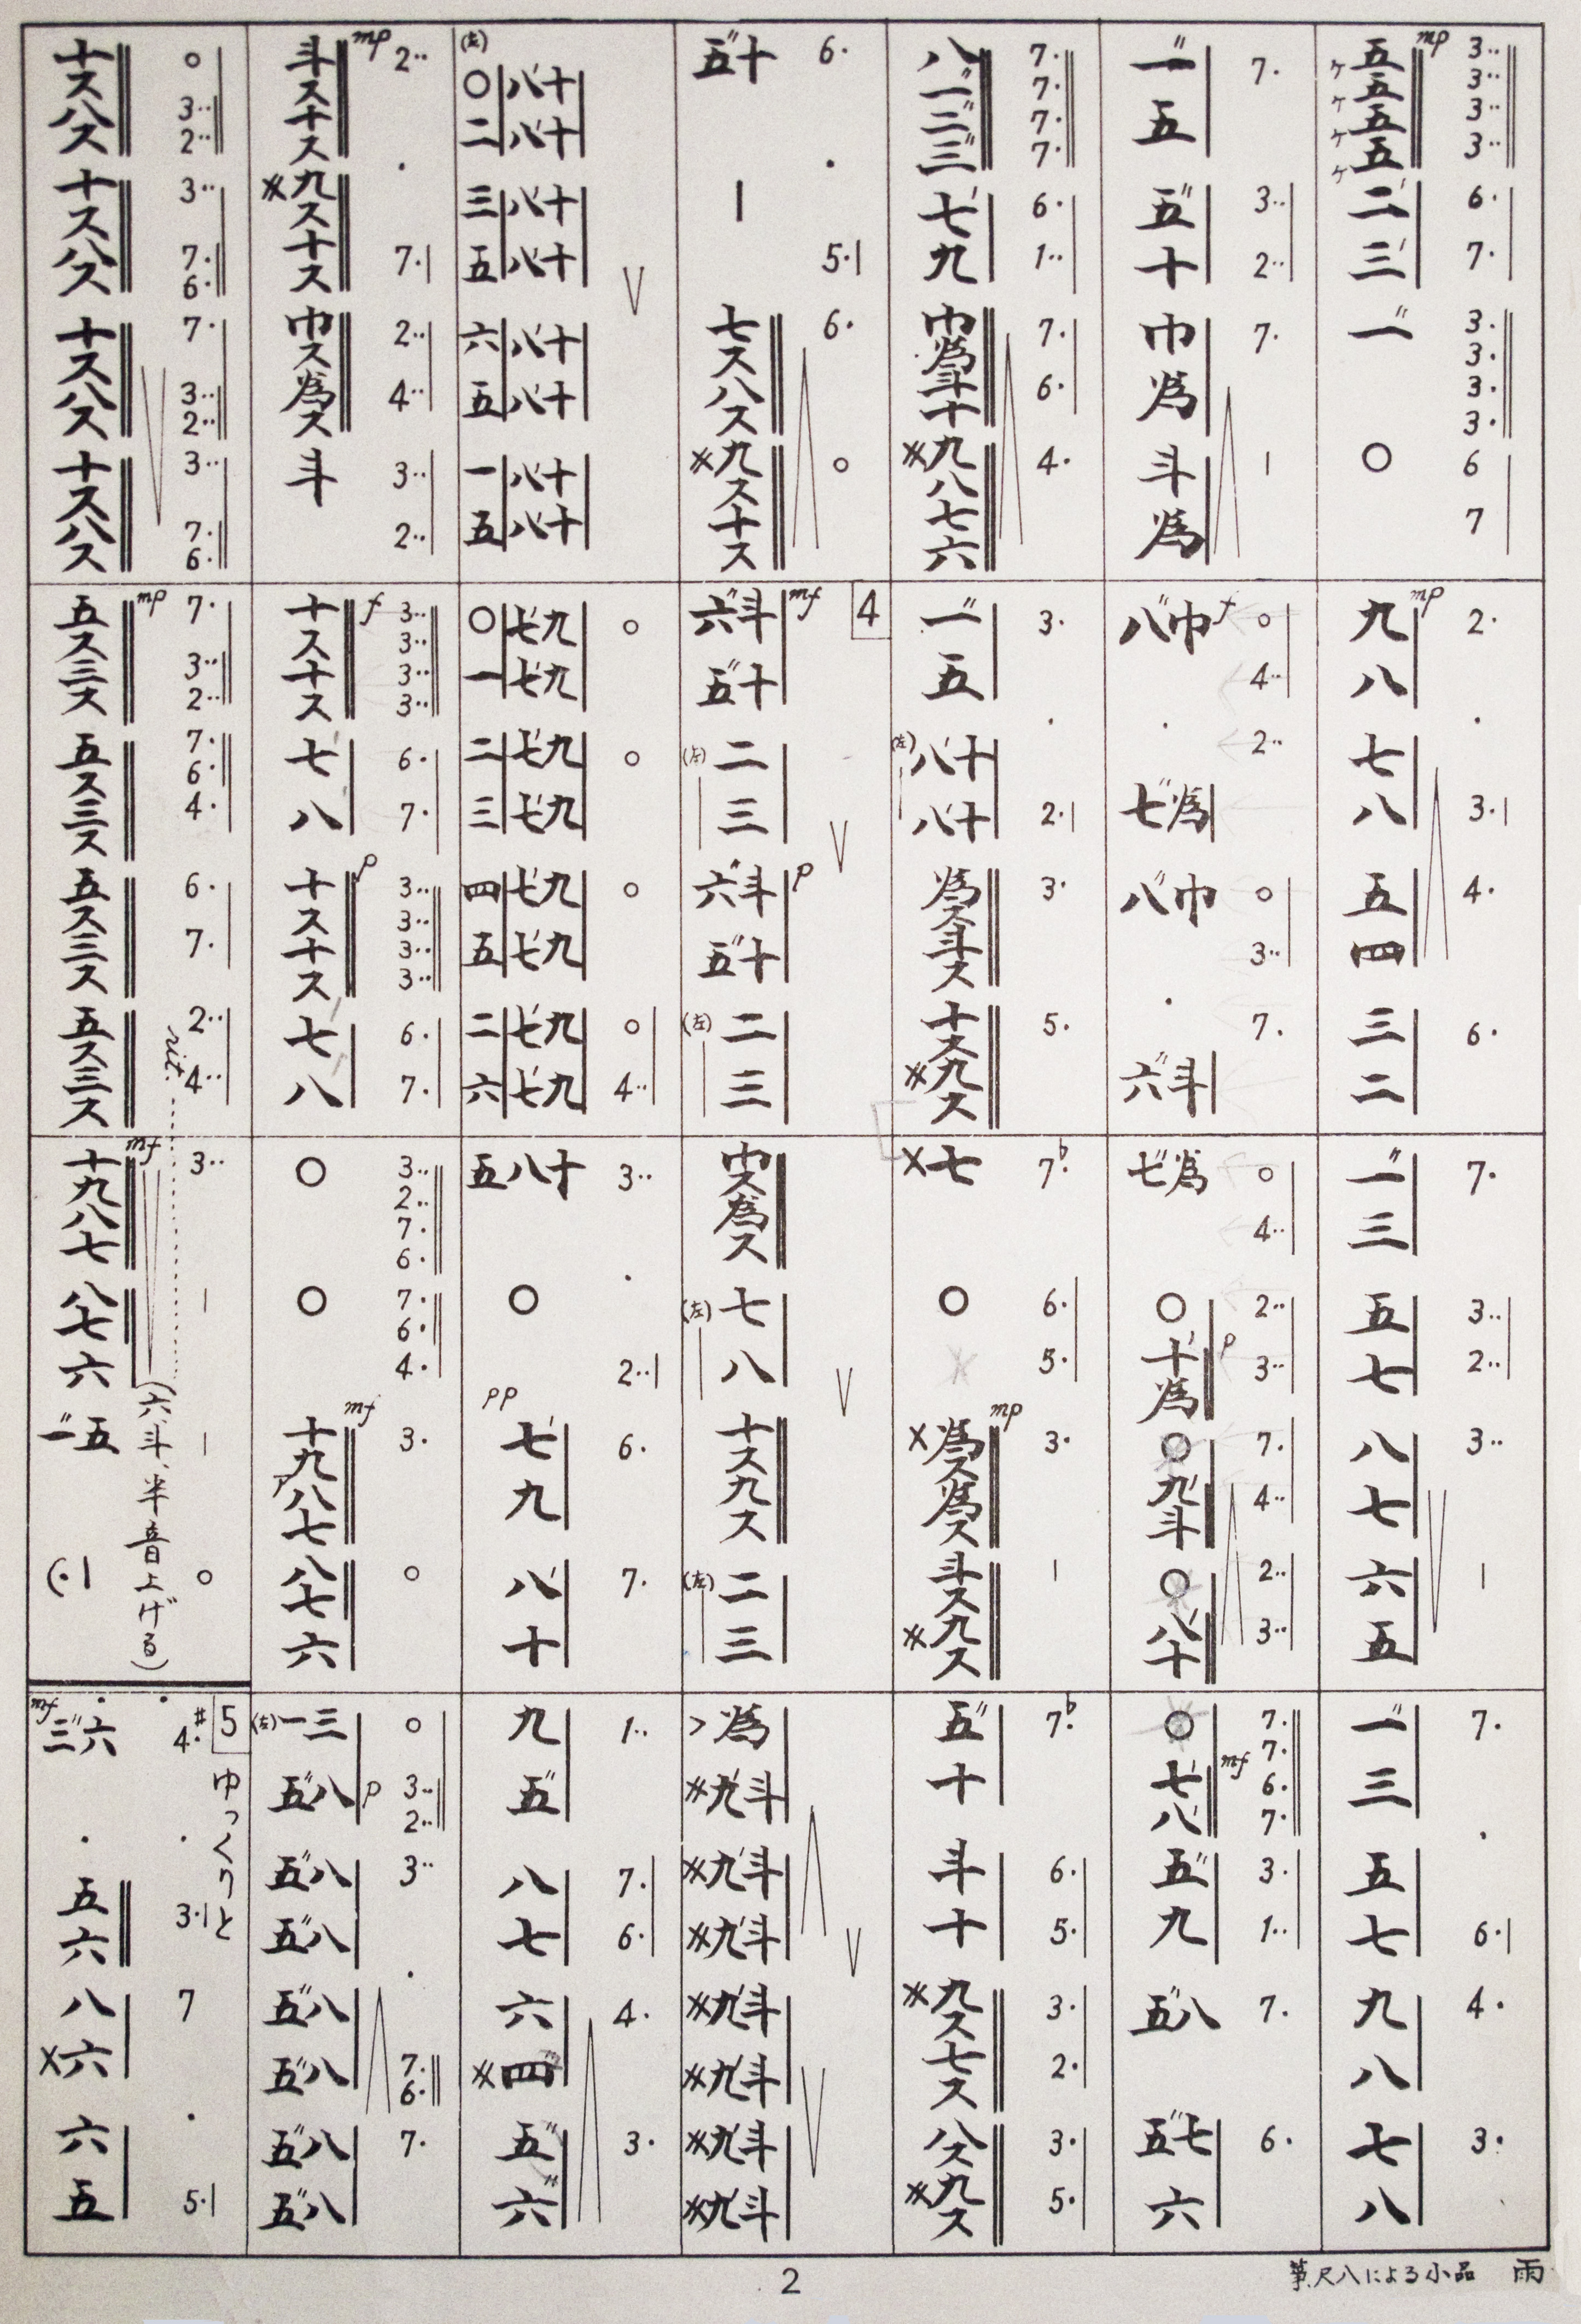 3·· 3·· 3·· 3·· 6· 7· 3· 3· 3· 3· 6 7 2· · 3· 4· 6· 7· 3·· 2·· 3·· | 7· · 6· 4· 3·
mp mp
五ヶ五ヶ五ヶ五ヶ二三一〇九八七八五四三二一三五七八七六五一三五七九八七八
7· 3·· 2·· 7· | ○ 4·· 2·· ○ 3·· 7· ○ 4·· 2·· 3·· 7· 4·· 2·· 3·· 7· 7· 6· 7· 3· 1·· 7· 6·
f p mf
一五五十巾為斗為八巾・七為八巾・六斗七為〇十為〇九斗〇八十〇七八五九五八五七六
7· 7· 7· 7· 6· 1·· 7· 6· 4· 3· · 2· 3· 5· 7♭· 6· 5· 3· | 7♭· 6· 5· 3· 2· 3· 5·
mp
八一二三七九巾為斗十九八七六一五(左)八十八十為ス斗ス十ス九ス七〇為ス為ス斗ス九ス五十斗十九ス七ス八ス九ス
6· · 5· 6· ○
4
mf p
五十|七ス八ス九ス十ス六斗五十(左)二三六斗五十(左)二三巾ス為ス(左)七八十ス九ス(左)二三為九斗九斗九斗九斗九斗九斗九斗
○ ○ ○ ○ 4·· 3·· · 2·· 6· 7· 1·· 7· 6· 4· 3·
pp
(左)〇八十二八十三八十五八十六八十五八十一八十五八十〇七九一七九二七九三七九四七九五七九二七九六七九五八十〇七九八十九五八七六四五六
2·· · 7· 2·· 4·· 3·· 2·· 3·· 3·· 3·· 3·· 6· 7· 3·· 3·· 3·· 3·· 6· 7· 3·· 2·· 7· 6· 7· 6· 4· 3· ○ ○ 3·· 2·· 3·· · 7· 6· 7·
mp f p mf p
斗ス十ス九ス十ス巾ス為ス斗十ス十ス七八十ス十ス七八〇〇十九ア八七八七六(左)一三五八五八五八五八五八五八五八
○ 3·· 2·· 3·· 7· 6· 7· 3·· 2·· 3·· 7· 6· 7· 3·· 2·· 7· 6· 4· 6· 7· 2·· 4·· 3·· | | ○
mp rit. mf
十ス八ス十ス八ス十ス八ス十ス八ス五ス三ス五ス三ス五ス三ス五ス三ス十九八七八七六一五
(六、斗、半音上げる)
5
ゆっくりと
4♯· · 3· 7 · 5·
mf
三六・五六八六六五
2
箏、尺八による小品 雨